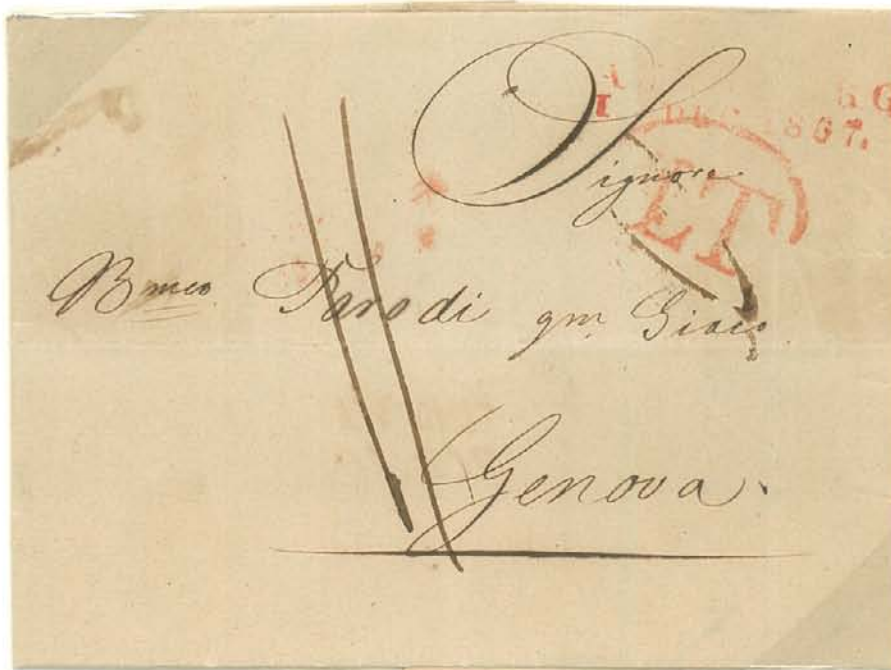 1867.
LT
Signore
Bmeo Parodi qm. Giaco
Genova.